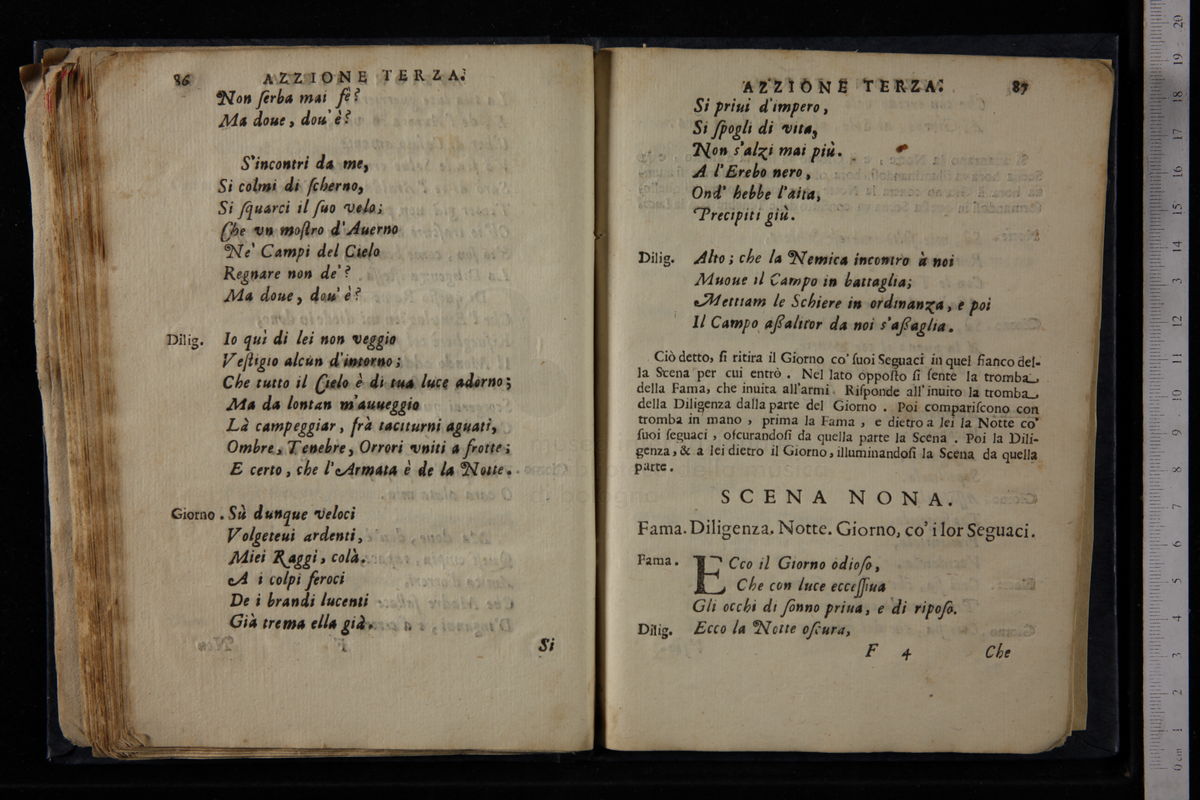 86 AZZIONE TERZA.
Non ſerba mai fè?
Ma doue, dou' è?
S'incontri da me,
Si colmi di ſcherno,
Si ſquarci il ſuo velo;
Che vn moſtro d'Auerno
Ne' Campi del Cielo
Regnare non de'?
Ma doue, dou' è?
Dilig. Io qui di lei non veggio
Veſtigio alcun d'intorno;
Che tutto il Cielo è di tua luce adorno;
Ma da lontan m'auueggio
Là campeggiar, frà taciturni aguati,
Ombre, Tenebre, Orrori vniti a frotte;
E certo, che l'Armata è de la Notte.
Giorno. Sù dunque veloci
Volgeteui ardenti,
Miei Raggi, colà.
A i colpi feroci
De i brandi lucenti
Già trema ella già.
Si
AZZIONE TERZA. 87
Si priui d'impero,
Si ſpogli di vita,
Non s'alzi mai più.
A l'Erebo nero,
Ond' hebbe l'aita,
Precipiti giù.
Dilig. Alto; che la Nemica incontro à noi
Muoue il Campo in battaglia;
Mettiam le Schiere in ordinanza, e poi
Il Campo aßalitor da noi s'aßaglia.
Ciò detto, ſi ritira il Giorno co' ſuoi Seguaci in quel fianco del-
la Scena per cui entrò. Nel lato oppoſto ſi ſente la tromba
della Fama, che inuita all'armi. Riſponde all'inuito la tromba
della Diligenza dalla parte del Giorno. Poi compariſcono con
tromba in mano, prima la Fama, e dietro a lei la Notte co'
ſuoi ſeguaci, oſcurandoſi da quella parte la Scena. Poi la Dili-
genza, & a lei dietro il Giorno, illuminandoſi la Scena da quella
parte.
SCENA NONA.
Fama. Diligenza. Notte. Giorno, co' i lor Seguaci.
Fama. ECco il Giorno odioſo,
Che con luce ecceſſiua
Gli occhi di ſonno priua, e di ripoſo.
Dilig. Ecco la Notte oſcura,
F 4 Che